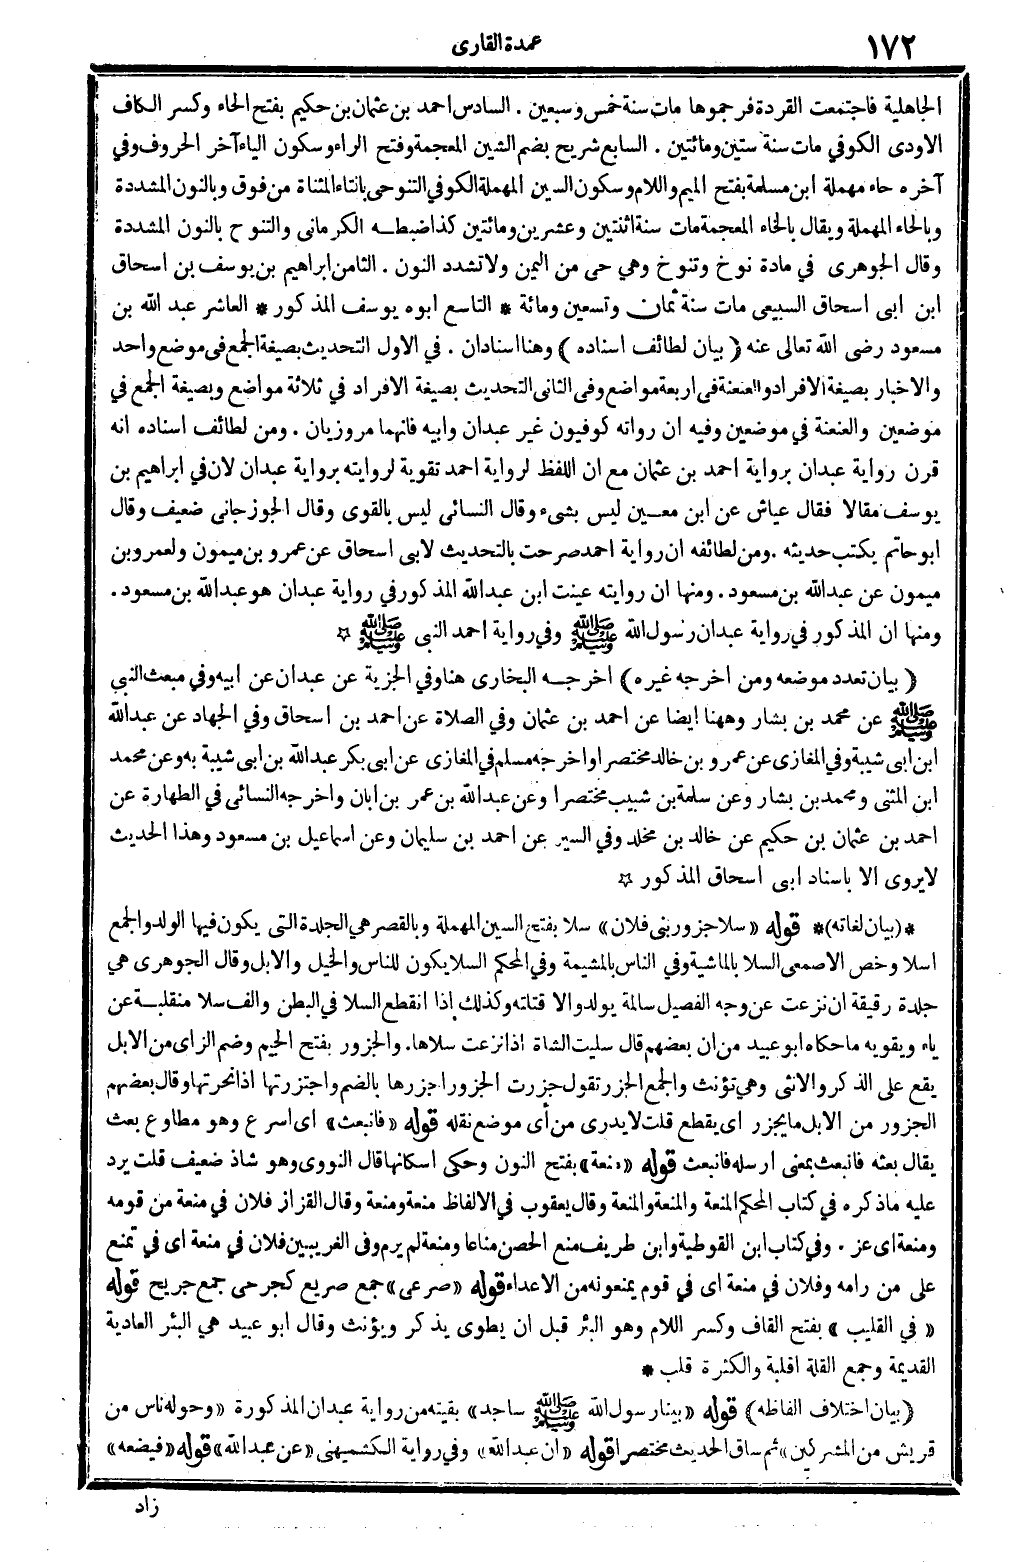 ١٧٢
عمدة القارى
الجاهلية فاجتمعت القردة فرجموها مات سنة خمس وسبعين . السادس احمد بن عثمان بن حكيم بفتح الحاء وكسر الكاف
الاودى الكوفي مات سنة ستين ومائتين . السابع شريح بضم الشين المعجمة وفتح الراء وسكون الياء آخر الحروف وفي
آخره حاء مهملة ابن مسلمة بفتح الميم واللام وسكون السين المهملة الكوفي التنوحى بالتاء المثناة من فوق وبالنون المشددة
وبالحاء المهملة ويقال بالخاء المعجمة مات سنة اثنتين وعشرين ومائتين كذا ضبطه الكرمانى والتنوح بالنون المشددة
وقال الجوهرى في مادة نوخ وتنوخ وهي حى من اليمن ولا تشدد النون . الثامن ابراهيم بن يوسف بن اسحاق
ابن ابى اسحاق السبيعى مات سنة ثمان وتسعين ومائة * التاسع ابوه يوسف المذكور * العاشر عبد الله بن
مسعود رضى الله تعالى عنه ( بيان لطائف اسناده ) وهنا اسنادان . في الاول التحديث بصيغة الجمع في موضع واحد
والاخبار بصيغة الافراد والعنعنة فى اربعة مواضع وفى الثانى التحديث بصيغة الافراد في ثلاثة مواضع وبصيغة الجمع في
موضعين والعنعنة في موضعين وفيه ان رواته كوفيون غير عبدان وابيه فانهما مروزيان . ومن لطائف اسناده انه
قرن رواية عبدان برواية احمد بن عثمان مع ان اللفظ لرواية احمد تقوية لروايته برواية عبدان لان في ابراهيم بن
يوسف مقالا فقال عياش عن ابن معين ليس بشىء وقال النسائى ليس بالقوى وقال الجوزجانى ضعيف وقال
ابو حاتم يكتب حديثه . ومن لطائفه ان رواية احمد صرحت بالتحديث لابى اسحاق عن عمرو بن ميمون ولعمرو بن
ميمون عن عبدالله بن مسعود . ومنها ان روايته عينت ابن عبدالله المذكور في رواية عبدان هو عبدالله بن مسعود .
ومنها ان المذكور في رواية عبدان رسول الله ﷺ وفي رواية احمد النبى ﷺ ☆
( بيان تعدد موضعه ومن اخرجه غيره ) اخرجه البخارى هنا وفي الجزية عن عبدان عن ابيه وفي مبعث النبي
ﷺ عن محمد بن بشار وههنا ايضا عن احمد بن عثمان وفي الصلاة عن احمد بن اسحاق وفي الجهاد عن عبدالله
ابن ابى شيبة وفي المغازى عن عمرو بن خالد مختصرا واخرجه مسلم في المغازى عن ابى بكر عبدالله بن ابى شيبة به وعن محمد
ابن المثنى ومحمد بن بشار وعن سلمة بن شبيب مختصرا وعن عبدالله بن عمر بن ابان واخرجه النسائى في الطهارة عن
احمد بن عثمان بن حكيم عن خالد بن مخلد وفي السير عن احمد بن سليمان وعن اسماعيل بن مسعود وهذا الحديث
لا يروى الا باسناد ابى اسحاق المذكور ☆
*(بيان لغاته)* قوله «سلا جزور بنى فلان» سلا بفتح السين المهملة وبالقصر هي الجلدة التى يكون فيها الولد والجمع
اسلا وخص الاصمعى السلا بالماشية وفي الناس بالمشيمة وفي المحكم السلا يكون للناس والخيل والابل وقال الجوهرى هي
جلدة رقيقة ان نزعت عن وجه الفصيل سالمة يولد والا قتلته وكذلك اذا انقطع السلا في البطن والف سلا منقلبة عن
ياء ويقويه ما حكاه ابو عبيد من ان بعضهم قال سليت الشاة اذا نزعت سلاها . والجزور بفتح الجيم وضم الزاى من الابل
يقع على الذكر والانثى وهي تؤنث والجمع الجزر تقول جزرت الجزور اجزرها بالضم واجتزرتها اذا نحرتها وقال بعضهم
الجزور من الابل ما يجزر اى يقطع قلت لا يدرى من أى موضع نقله قوله «فانبعث» اى اسرع وهو مطاوع بعث
يقال بعثه فانبعث بمعنى ارسله فانبعث قوله «منعة» بفتح النون وحكى اسكانها قال النووى وهو شاذ ضعيف قلت يرد
عليه ما ذكره في كتاب المحكم المنعة والمنعة والمنعة وقال يعقوب في الالفاظ منعة ومنعة وقال القزاز فلان في منعة من قومه
ومنعة اى عز . وفي كتاب ابن القوطية وابن طريف منع الحصن مناعا ومنعة لم يرم وفى الغريبين فلان في منعة اى في تمنع
على من رامه وفلان في منعة اى في قوم يمنعونه من الاعداء قوله «صرعى» جمع صريع كجرحى جمع جريح قوله
« في القليب » بفتح القاف وكسر اللام وهو البئر قبل ان يطوى يذكر ويؤنث وقال ابو عبيد هي البئر العادية
القديمة وجمع القلة اقلبة والكثرة قلب *
(بيان اختلاف الفاظه) قوله «بينا رسول الله ﷺ ساجد» بقيته من رواية عبدان المذكورة «وحوله ناس من
قريش من المشركين» ثم ساق الحديث مختصرا قوله «ان عبدالله» وفي رواية الكشميهنى «عن عبدالله» قوله «فيضعه»
زاد